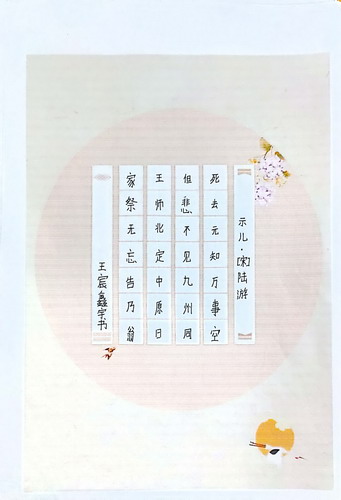 示儿·[宋]陆游
死去元知万事空
但悲不见九州同
王师北定中原日
家祭无忘告乃翁
王宸鑫字书